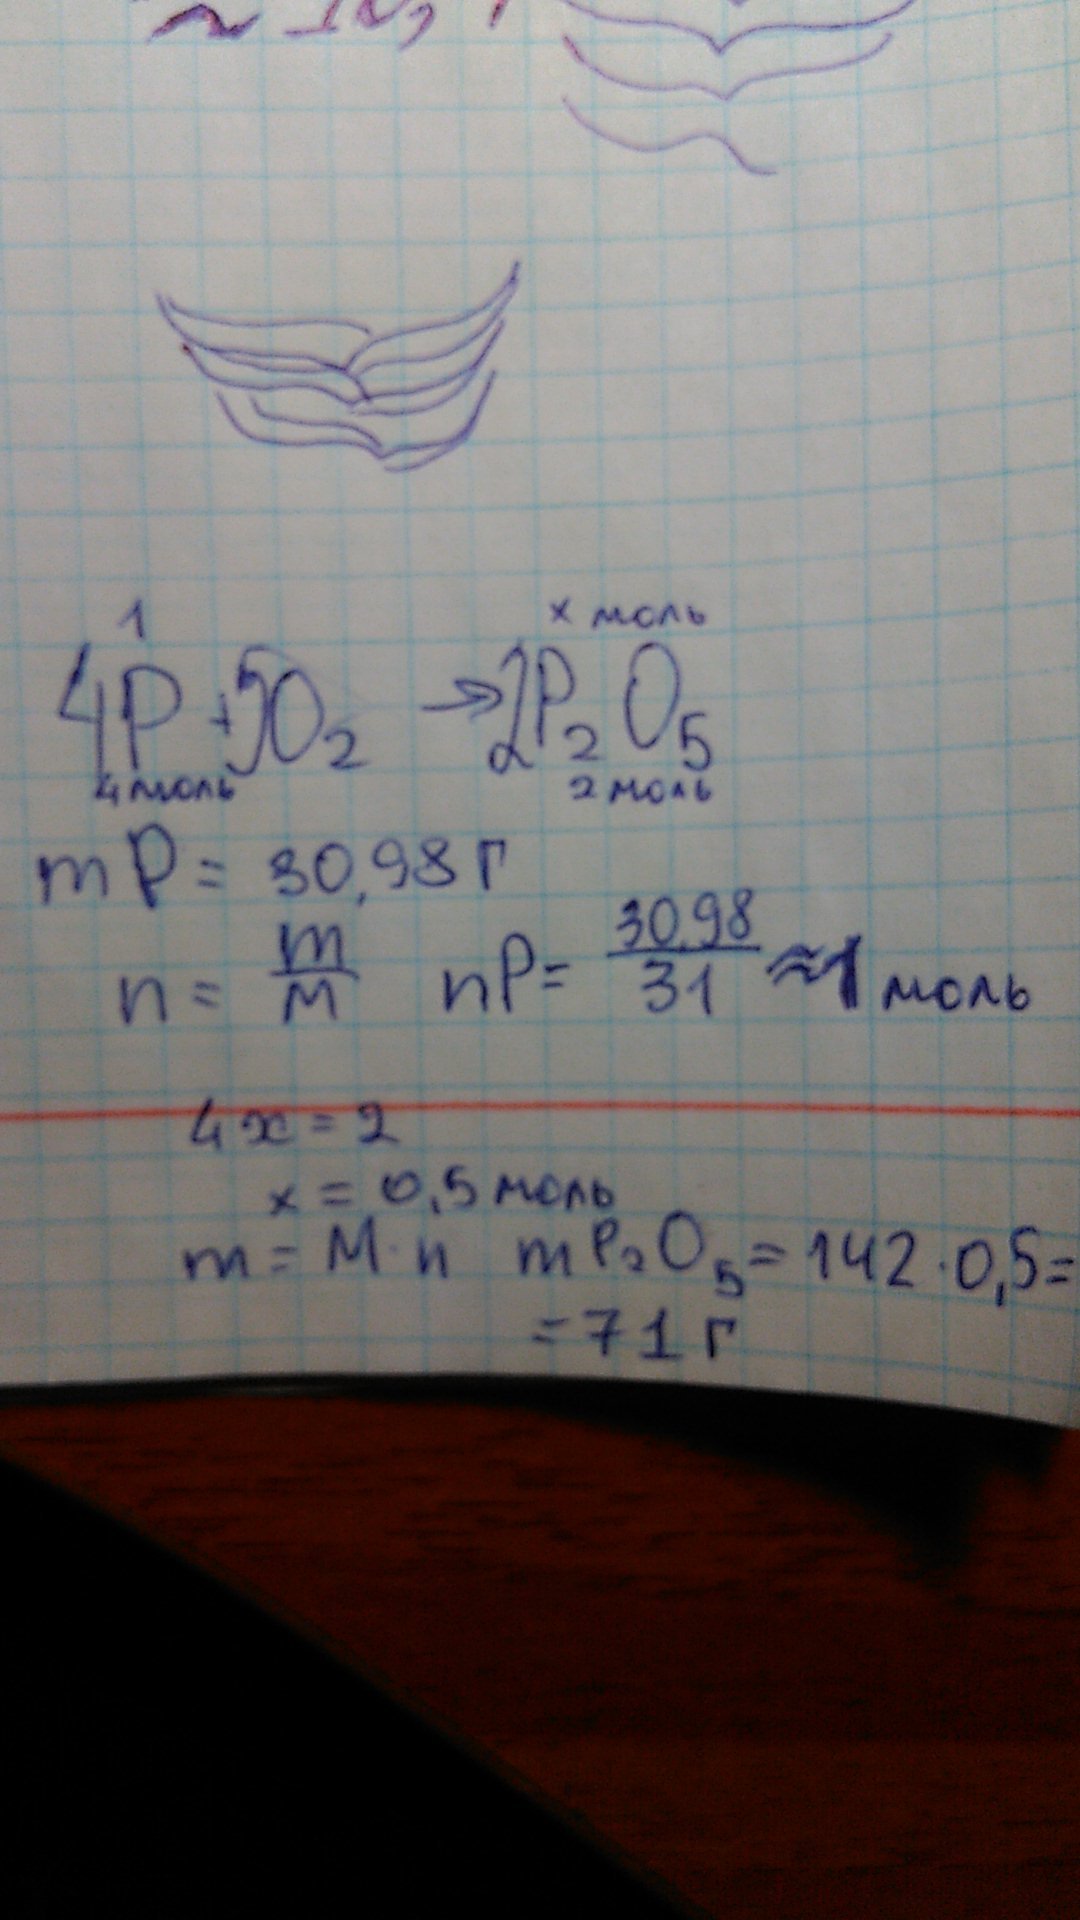 1 x моль
4P + 5O₂ → 2P₂O₅
4 моль 2 моль
mP = 30,98 г
n = m/M nP = 30,98/31 ≈ 1 моль
4x = 2
x = 0,5 моль
m = M · n mP₂O₅ = 142 · 0,5 =
= 71 г